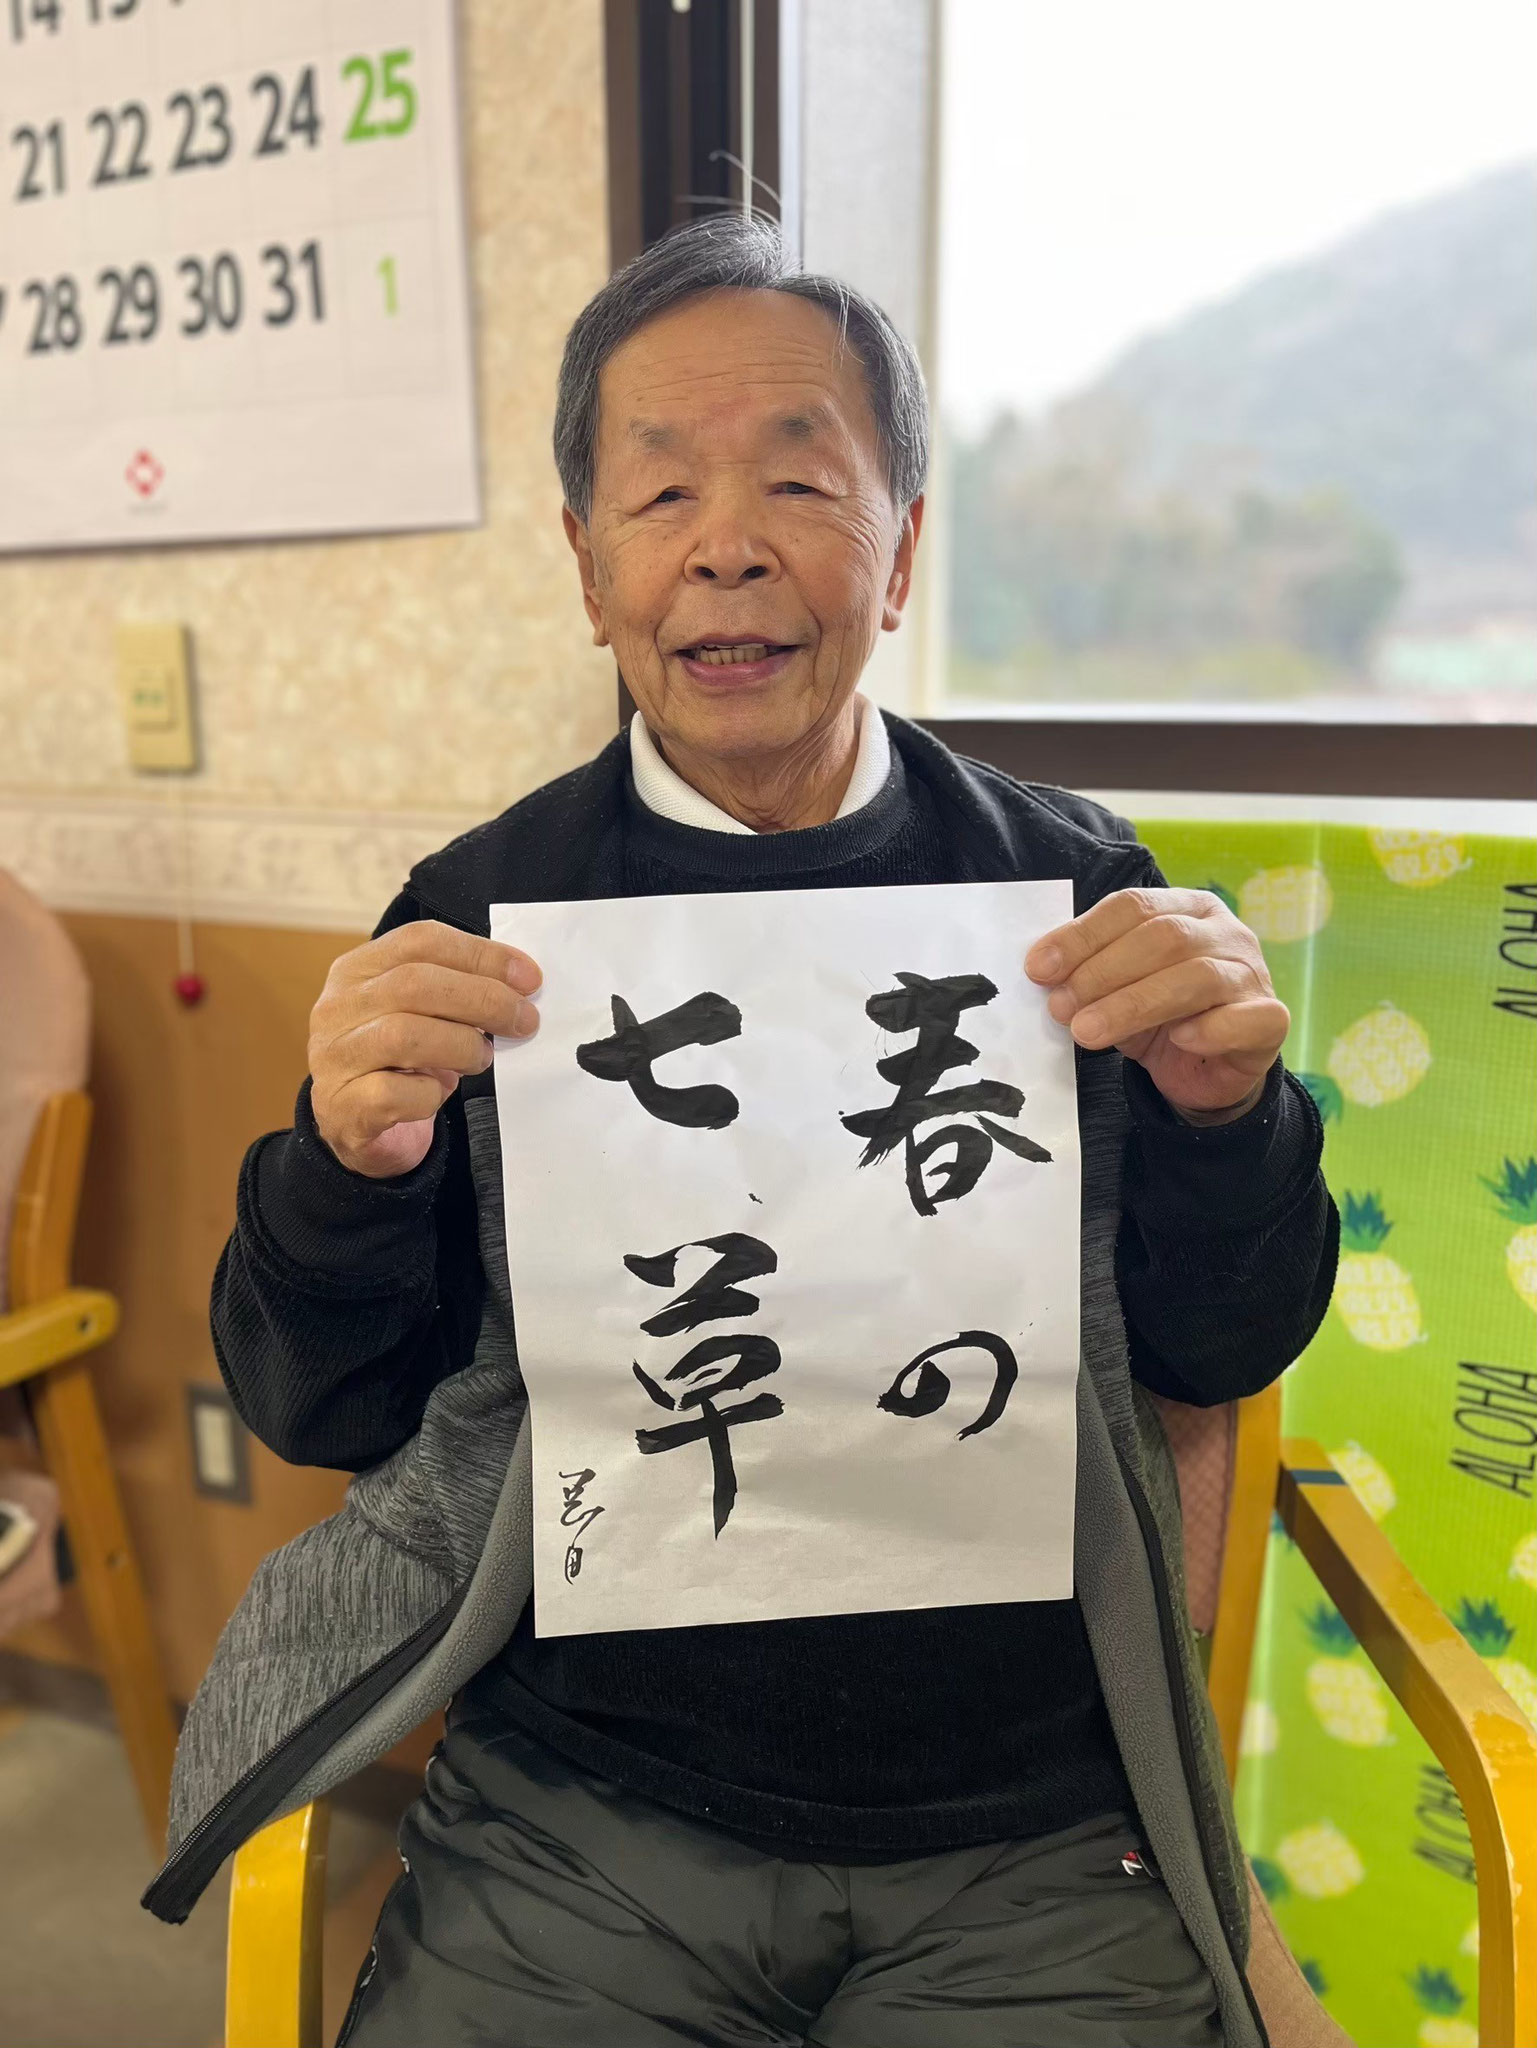 14 15
21 22 23 24 25
28 29 30 31 1
春の
七草
ALOHA
ALOHA
ALOHA